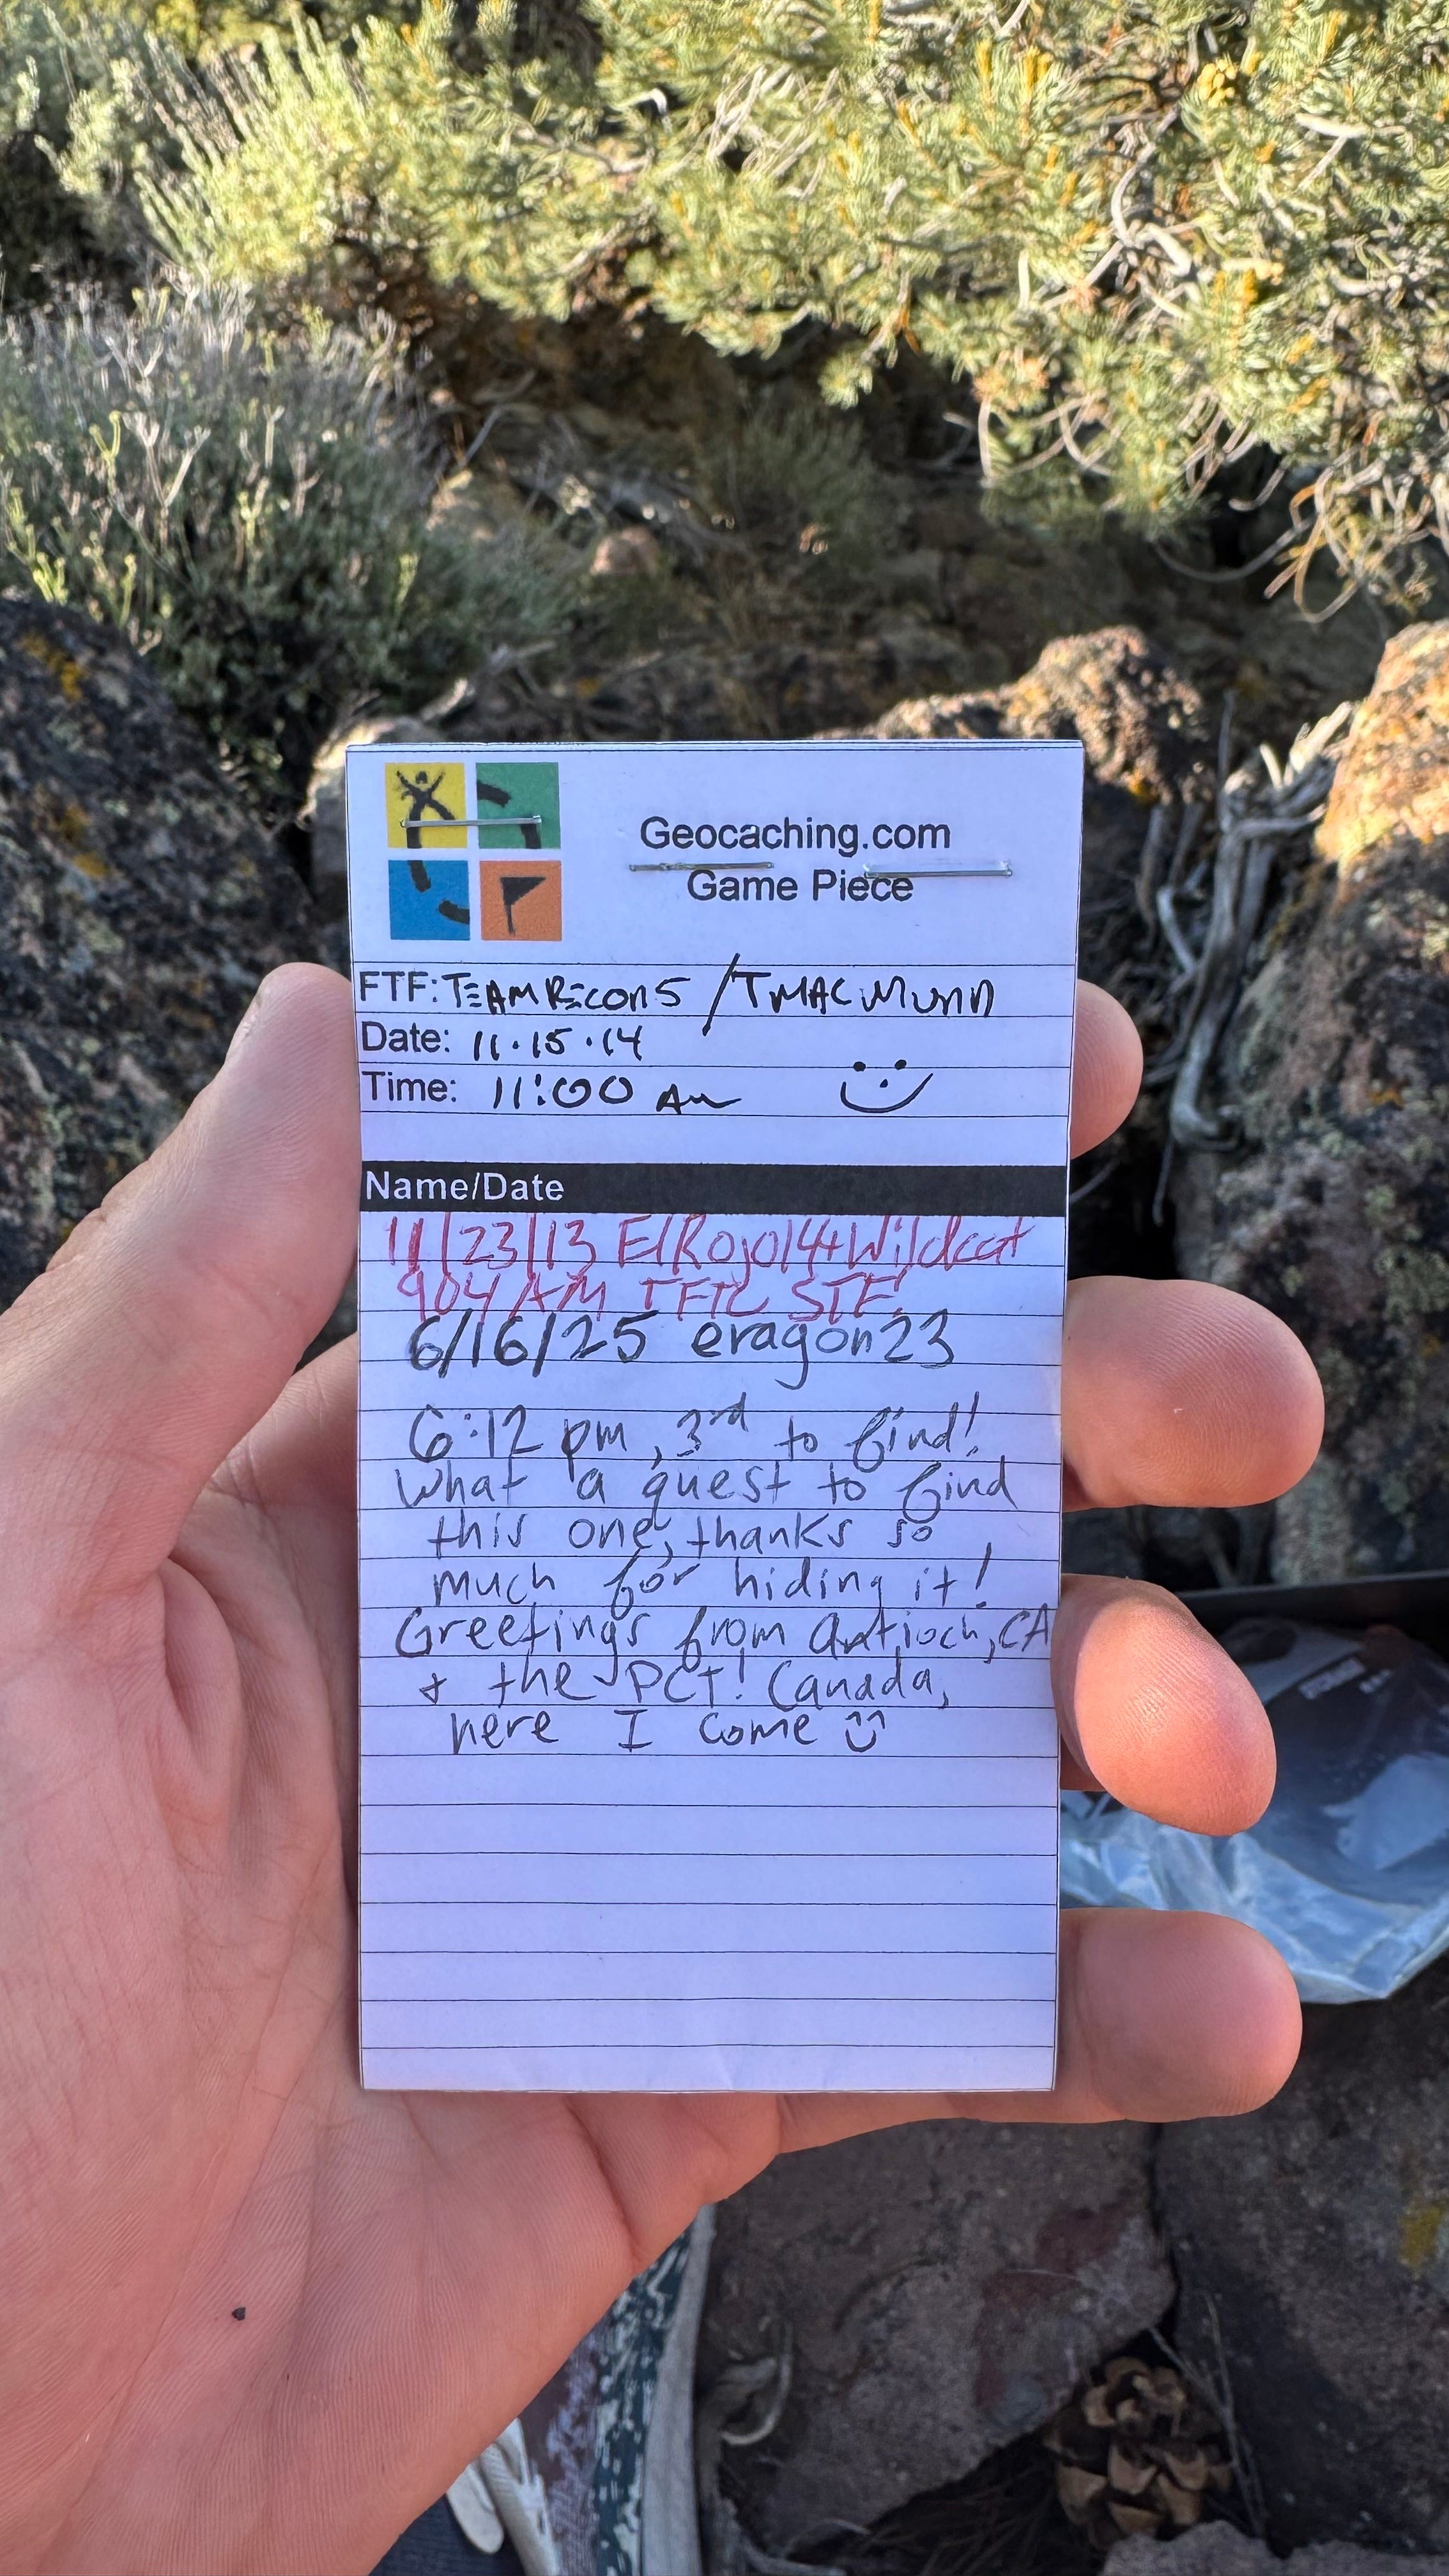 Geocaching.com
Game Piece
FTF: TEAMRECON5 / TMACMUNN
Date: 11·15·14
Time: 11:00 AM
Name/Date
11/23/13 ElRojo14+Wildcat
904 AM TFTC STF
6/16/25 eragon23
6:12 pm, 3rd to find!
What a quest to find
this one, thanks so
much for hiding it!
Greetings from Antioch, CA
+ the PCT! Canada,
here I come